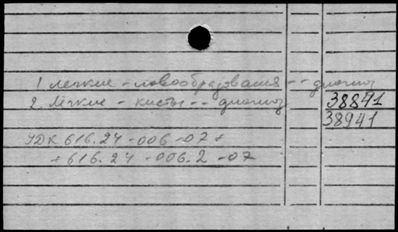 1. Легкие - новообразования -- диагноз
2. Лёгкие - кисты -- диагноз 38841
38941
УДК 616.24-006-07 +
+ 616.24-006.2-07